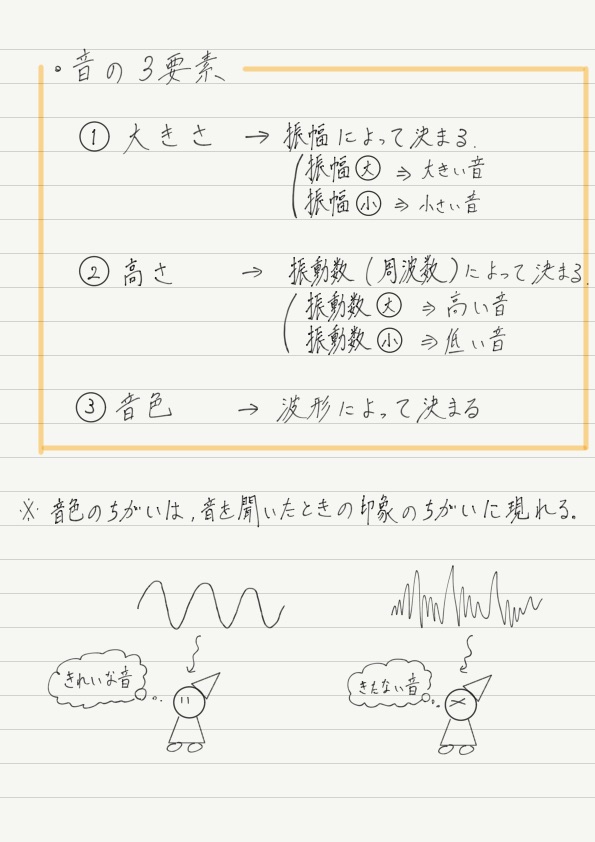 ・音の3要素
① 大きさ → 振幅によって決まる.
振幅大 ⇒ 大きい音
振幅小 ⇒ 小さい音
② 高さ → 振動数(周波数)によって決まる.
振動数大 ⇒ 高い音
振動数小 ⇒ 低い音
③ 音色 → 波形によって決まる
※ 音色のちがいは,音を聞いたときの印象のちがいに現れる。
きれいな音
きたない音